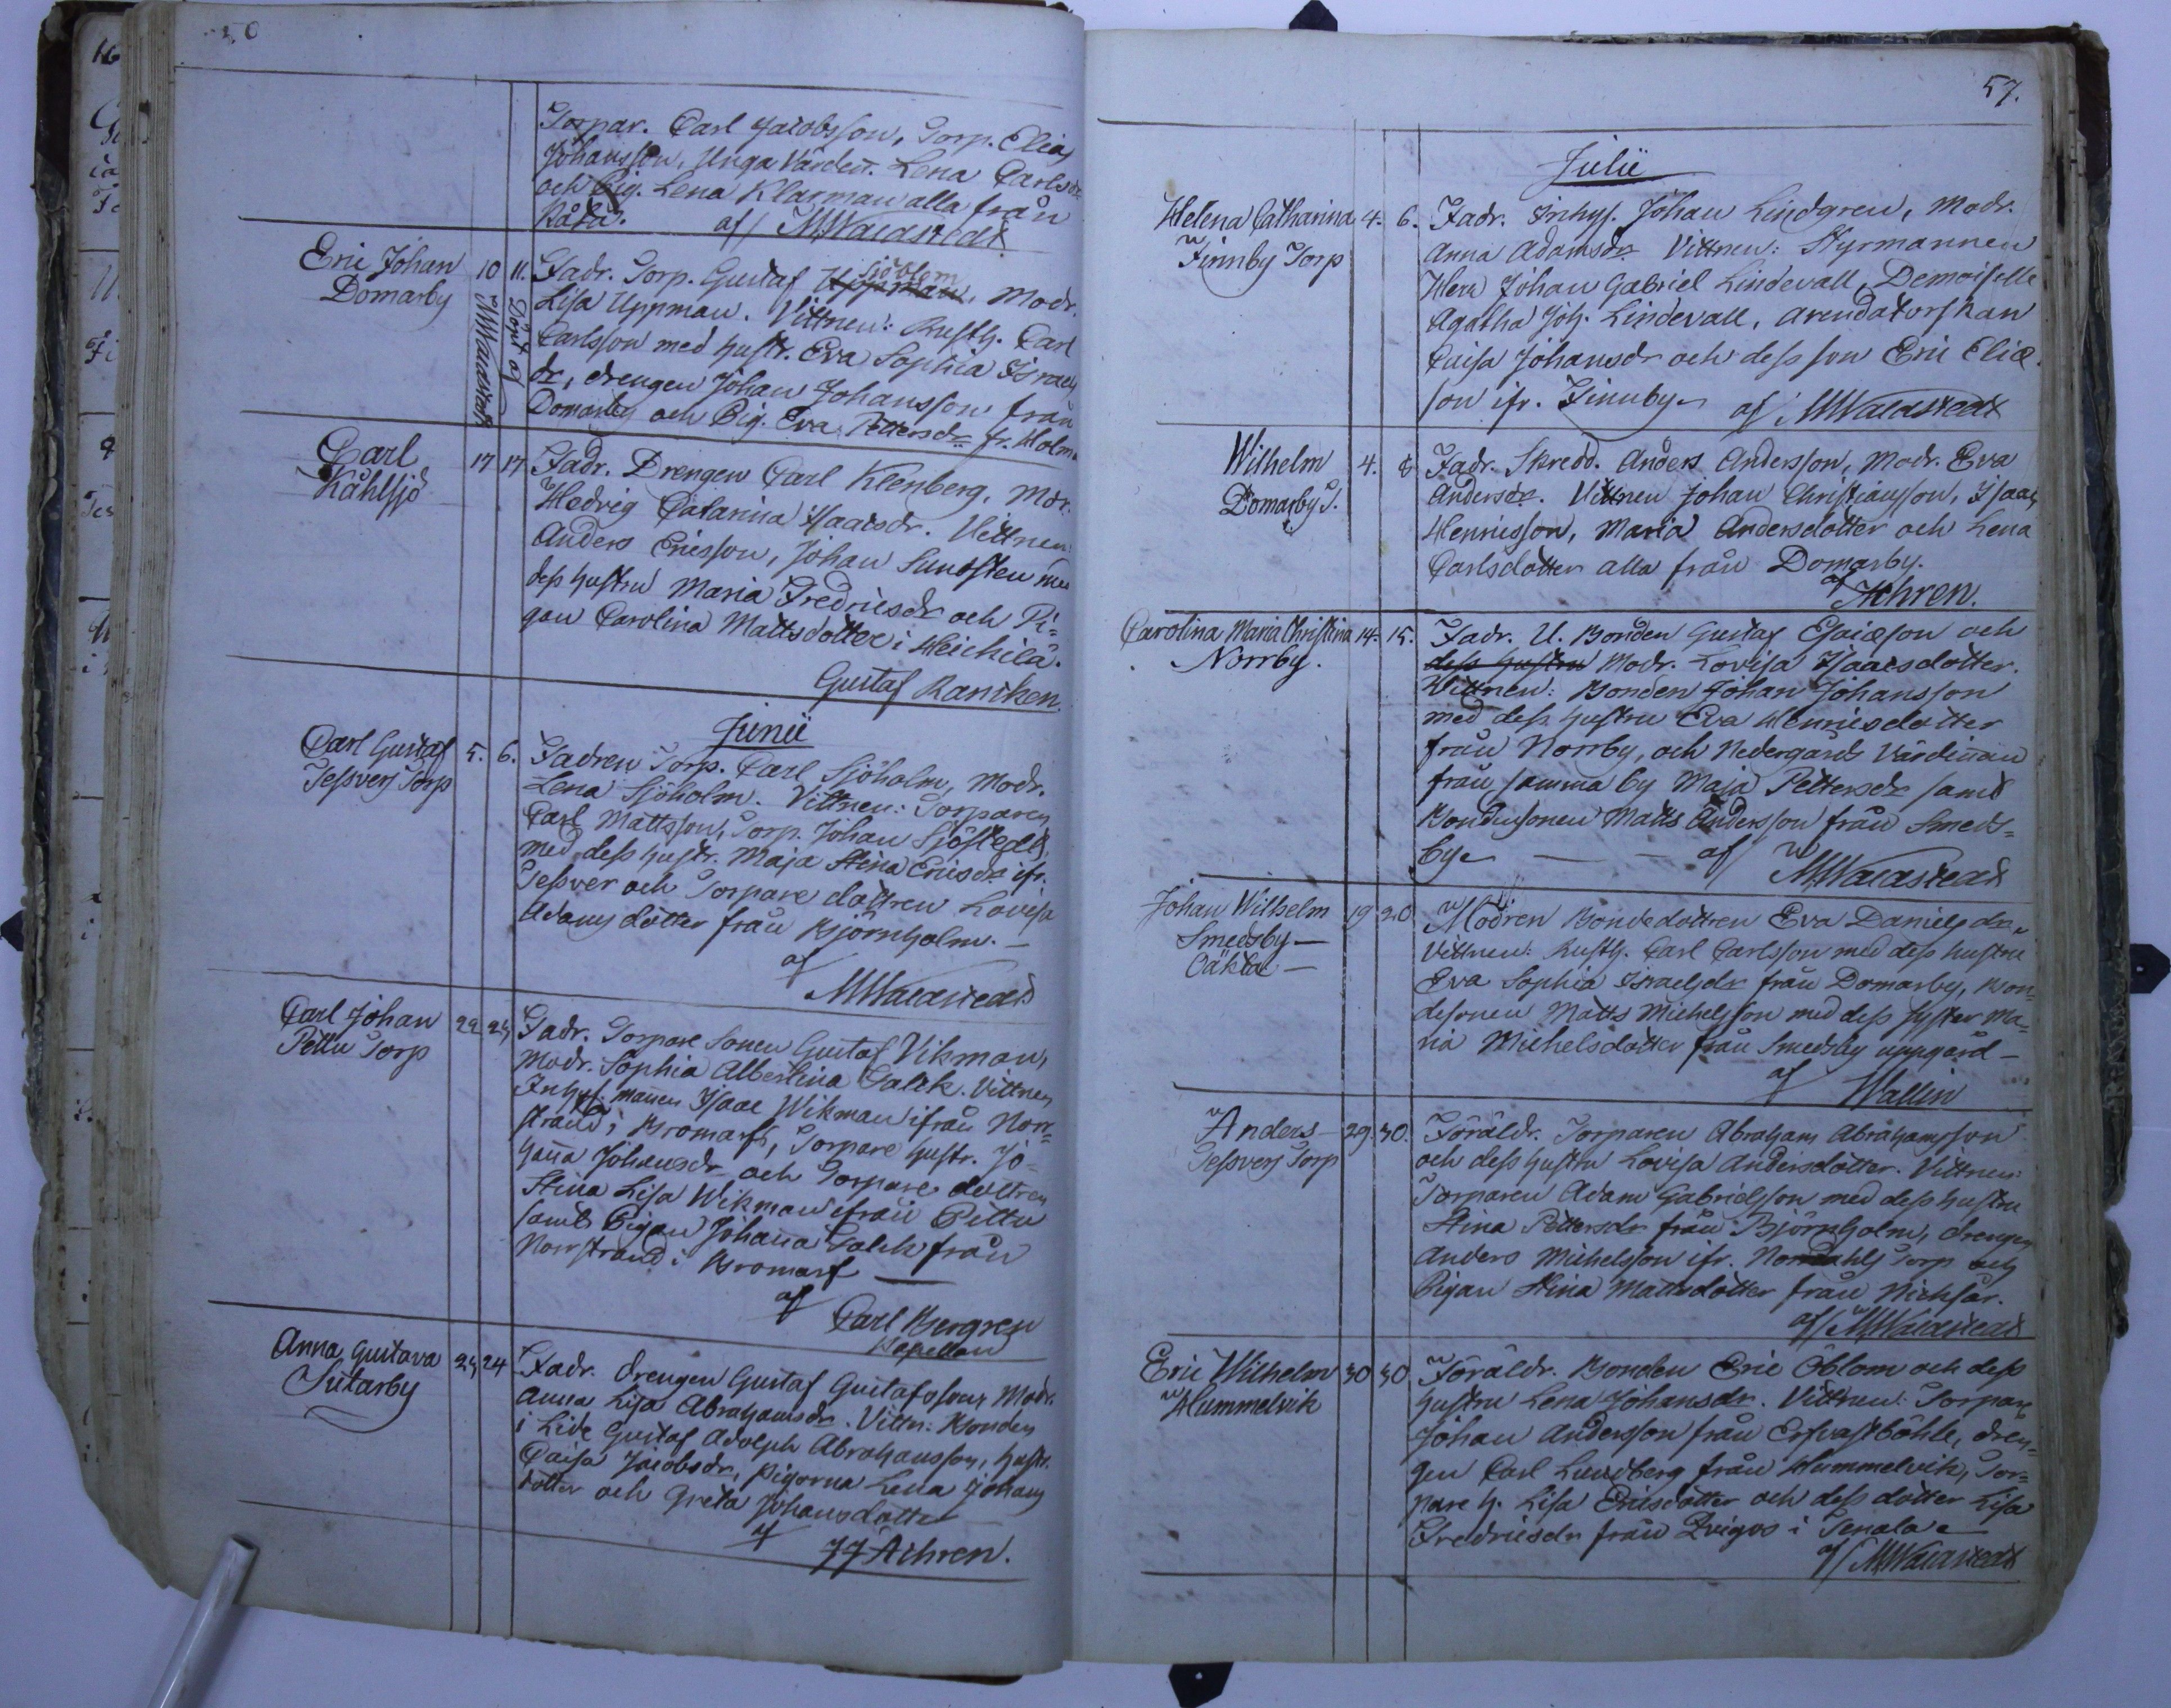 Torpar. Carl Jacobsson, Torp. Elias
Johansson, Unga Värdin. Lena Carlsdr
och Pig. Lena Klarman alla från
Råbÿ. af/ MWaldstedt
Eric Johan 10 11. Fadr. Torp. Gustaf Uppman, Sjöblom Modr.
Domarby Lisa Uppman. Vittnen: Rusth. Carl
Döpt af MWaldstedt
Carlsson med hustr. Eva Sophia Israels
dr, drengen Johan Johansson från
Domarby och Pig. Eva Pettersdr fr. Holm
Carl 17 17 Fadr. Drengen Carl Klenberg, Mor.
Kåhlsjö Hedvig Catarina Isaacsdr. Vittnen:
Anders Ericsson, Johan Sundsten med
dess hustru Maria Fredricsdr och Pi=
gan Carolina Mattsdotter i Heickilä.
Gustaf Rancken.
Junii
Carl Gustaf 5. 6. Fadren Torp. Carl Sjöholm, Modr.
Tessvers Torp Lena Sjöholm. Vittnen: Torparen
Carl Mattsson, Torp. Johan Sjöstedt,
med dess hustr. Maja Stina Ericsdr ifr.
Tessver och Torpare dottren Lovisa
Adamsdotter från Björnholm. —
af
MWaldstedt
Carl Johan 22 24 Fadr. Torpare Sonen Gustaf Vikman,
Pettu Torp Modr. Sophia Albertina Falck. Vittnen
Inhys. mannen Isaac Wikman ifrån Norr=
strand i Bromarf, Torpare hustr. Jo=
hanna Johansdr och Torpare dottren
Stina Lisa Wikman ifrån Pettu
samt Pigan Johanna Falck från
Norrstrand i Bromarf —
af
Carl Bergren
Kapellan
Anna Gustava 24 24 Fadr. drengen Gustaf Gustafsson, Modr.
Sutarby Anna Lisa Abrahamsdr. Vittn: Bonden
i Lide Gustaf Adolph Abrahamsson, hustr.
Caisa Jacobsdr, pigorna Lena Johans
dotter och Greta Johansdotter
af
JJ Achren.
57.
Julii
Helena Catharina 4. 6. Fadr. Inhys. Johan Lindgren, Modr.
Finnby Torp Anna Adamsdr Vittnen: Styrmannen
Herr Johan Gabriel Lindevall, Demoiselle
Agatha Joh. Lindevall, arendatorskan
Caisa Johansdr och dess son Eric Eliæ
son ifr. Finnby af MWaldstedt
Wilhelm 4. 8 Fadr. Skredd. Anders Andersson, Modr. Eva
Domarby T. Andersdr. Vittnen Johan Christiansson, Isaac
Henricsson, Maria Andersdotter och Lena
Carlsdotter alla från Domarby.
af
Achren.
Carolina Maria Christina 14. 15. Fadr. U. Bonden Gustaf Esaiæson och
Norrby. dess hustru Modr. Lovisa Isaacsdotter.
Wittnen: Bonden Johan Johansson
med dess hustru Eva Henricsdotter
från Norrby, och Nedergårds Värdinnan
från samma by Maja Pettersdr samt
Bondesonen Matts Andersson från Smeds=
by — — af/ MWaldstedt
Johan Wilhelm 19 20 Modren Bondedottren Eva Danielsdr.
Smedsby — Vittnen: Rusth. Carl Carlsson med dess hustru
Oäkta — Eva Sophia Israelsdr från Domarby, Bon=
desonen Matts Michelsson med dess syster Ma=
ria Michelsdotter från Smedsby uppgård —
af
Wallin
Anders 29. 30. Föräldr. Torparen Abraham Abrahamsson
Tessvers Torp och dess hustru Lovisa Andersdotter. Vittnen:
Torparen Adam Gabrielsson med dess hustru
Stina Pettersdr från Björnholm, drengen
Anders Michelsson ifr. Norrdahls Torp och
Pigan Stina Mattsdotter från Nicksår.
af/ MWaldstedt
Eric Wilhelm 30 30 Föräldr. Bonden Eric Öblom och dess
Hummelvik hustru Lena Johansdr. Vittnen: Torparen
Johan Andersson från Erfvastböhle, dren=
gen Carl Lundberg från Hummelvik, Tor=
pare h. Lisa Ericsdotter och dess dotter Lisa
Fredricsdr från Prigvs i Tenala
af/ MWaldstedt